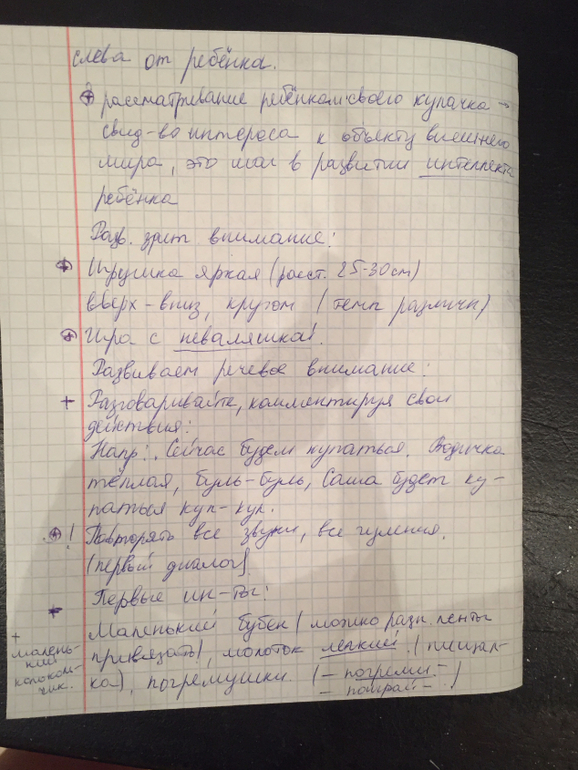 слева от ребёнка.
⊕ рассматривание ребёнком своего кулачка →
свид-во интереса к объекту внешнего
мира, это шаг в развитии интеллекта
ребёнка
Разв. зрит внимание:
⊕ Игрушка яркая (расст. 25-30 см)
вверх-вниз, кругом (темп различн)
⊕ Игра с неваляшкой.
Развиваем речевое внимание:
+ Разговаривайте, комментируя свои
действия:
Напр: Сейчас будем купаться. Водичка
тёплая, буль-буль, Саша будет ку-
паться куп-куп.
⊕! Повторять все звуки, все гуления.
(первый диалог).
Первые ин-ты:
+ Маленький бубен (можно разн. ленты
привязать), молоток легкий (пищал-
ка), погремушки. (– погреми –
– поиграй –)
+ малень-
кий
колоколь-
чик.